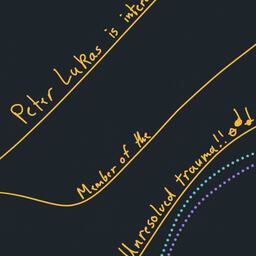 Peter Lukas is
Member of the
Unresolved trauma!!